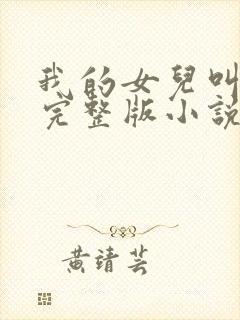 我的女兒叫
完整版小說
黄靖芸